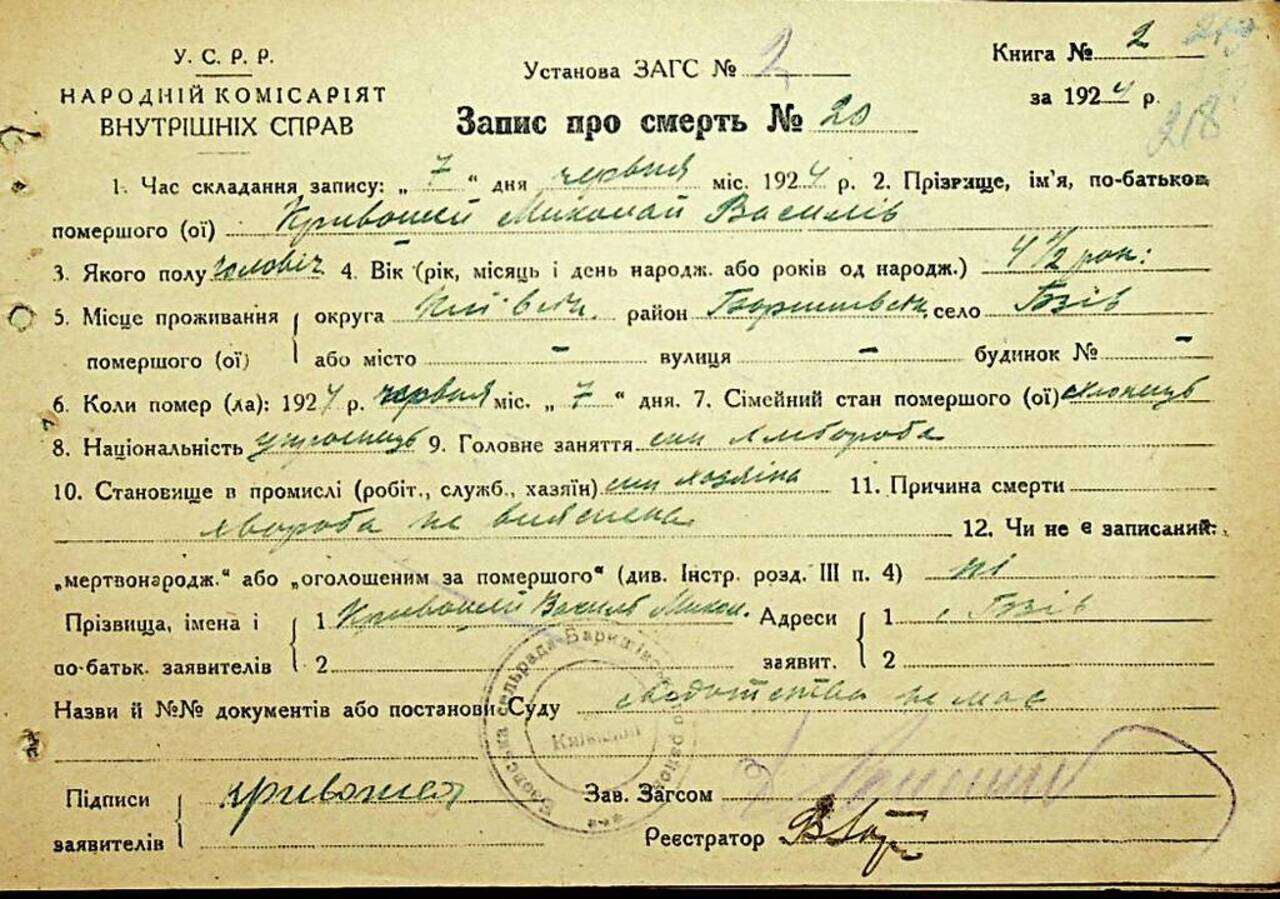 У. С. Р. Р.
НАРОДНІЙ КОМІСАРІЯТ
ВНУТРІШНІХ СПРАВ
Установа ЗАГС № 2
Запис про смерть № 20
Книга № 2
за 1924 р.
218
1. Час складання запису: „ 7 “ дня червня міс. 1924 р. 2. Прізвище, ім'я, по-батькові
помершого (ої) Кривошей Миколай Василів
3. Якого полу чоловіч 4. Вік (рік, місяць і день народж. або років од народж.) 4 1/2 рок:
5. Місце проживання округа Київськ. район Боришівськ, село Бзів
помершого (ої) або місто – вулиця – будинок № –
6. Коли помер (ла): 1924 р. червня міс. „ 7 “ дня. 7. Сімейний стан помершого (ої) хлопець
8. Національність українець 9. Головне заняття син хлібороба
10. Становище в промислі (робіт., служб., хазяїн) син хозяїна 11. Причина смерти
хвороба не вияснена 12. Чи не є записаний:
„мертвонародж.“ або „оголошеним за помершого“ (див. Інстр. розд. III п. 4) ні
Прізвища, імена і 1 Кривошей Василь Микол. Адреси 1 с Бзів
по-батьк. заявителів 2 заявит. 2
Назви й №№ документів або постанови Суду не має
сельрада Баришівського району
Київської
Підписи Кривошея Зав. Загсом
заявителів Реєстратор